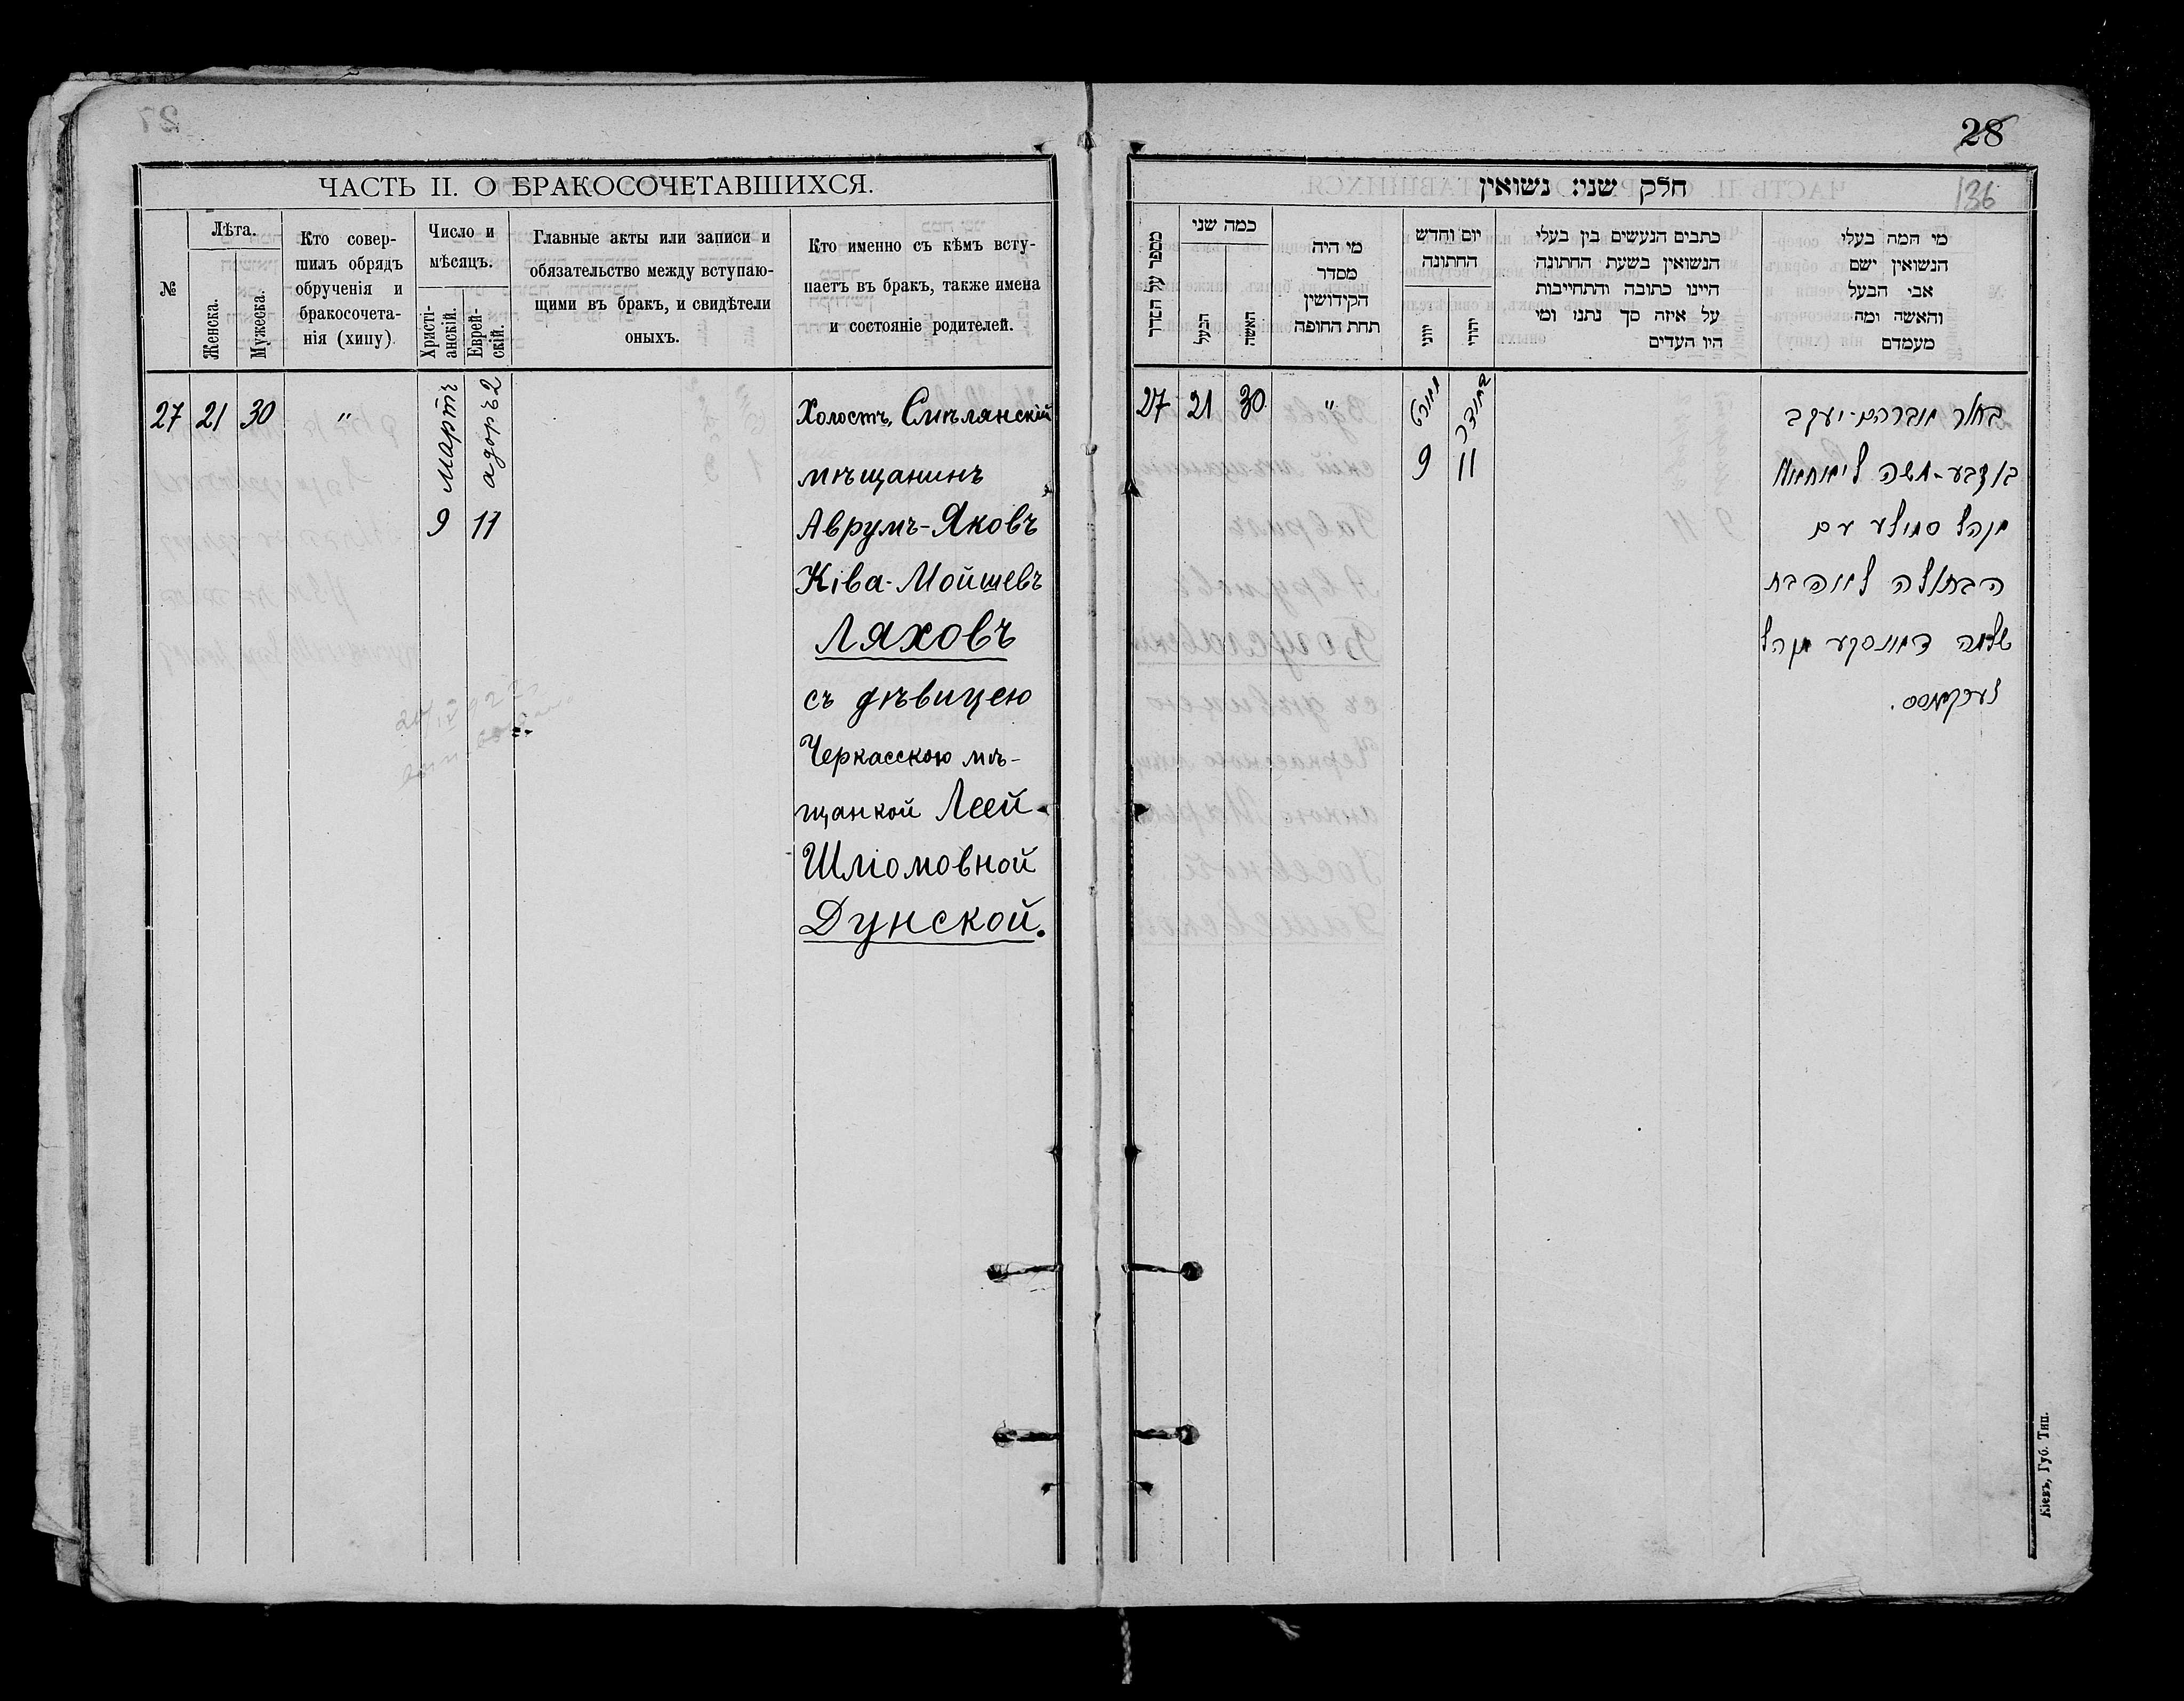 ЧАСТЬ II. О БРАКОСОЧЕТАВШИХСЯ.
№
Лѣта.
Женска.
Мужеска.
Кто совер-
шилъ обрядъ
обрученія и
бракосочета-
нія (хипу)
Число и
мѣсяцъ.
Христі-
анскій.
Еврей-
скій.
Главные акты или записи и
обязательство между вступаю-
щими въ бракъ, и свидѣтели
оныхъ.
Кто именно съ кѣмъ всту-
паетъ въ бракъ, также имена
и состояніе родителей.
27 21 30 "
мартъ
9
адоръ 2
11
Холостъ, Смѣлянскій
мѣщанинъ
Аврумъ-Яковъ
Ківа-Мойшевъ
Ляховъ
съ дѣвицею
Черкасскою мѣ-
щанкой Леей
Шліомовной
Дунской.
28
136
חלק שני: נשואין
מספר על הסדר
כמה שני
הבעל
האשה
מי היה
מסדר
הקידושין
תחת החופה
יום וחדש
החתונה
יהודי
כתבים הנעשים בין בעלי
הנשואין בשעת החתונה
היינו כתובה והתחייבות
על איזה סך נתנו ומי
היו העדים
מי המה בעלי
הנשואין ושם
אבי הבעל
והאשה ומה
מעמדם
27 21 30 "
מארט
9
11
בחור אברהם-יעקב
מקהל סמילע עם
הבתולה לאה בת
שלמה דאנסקע מקהל
Кіевъ, Губ. Тип.